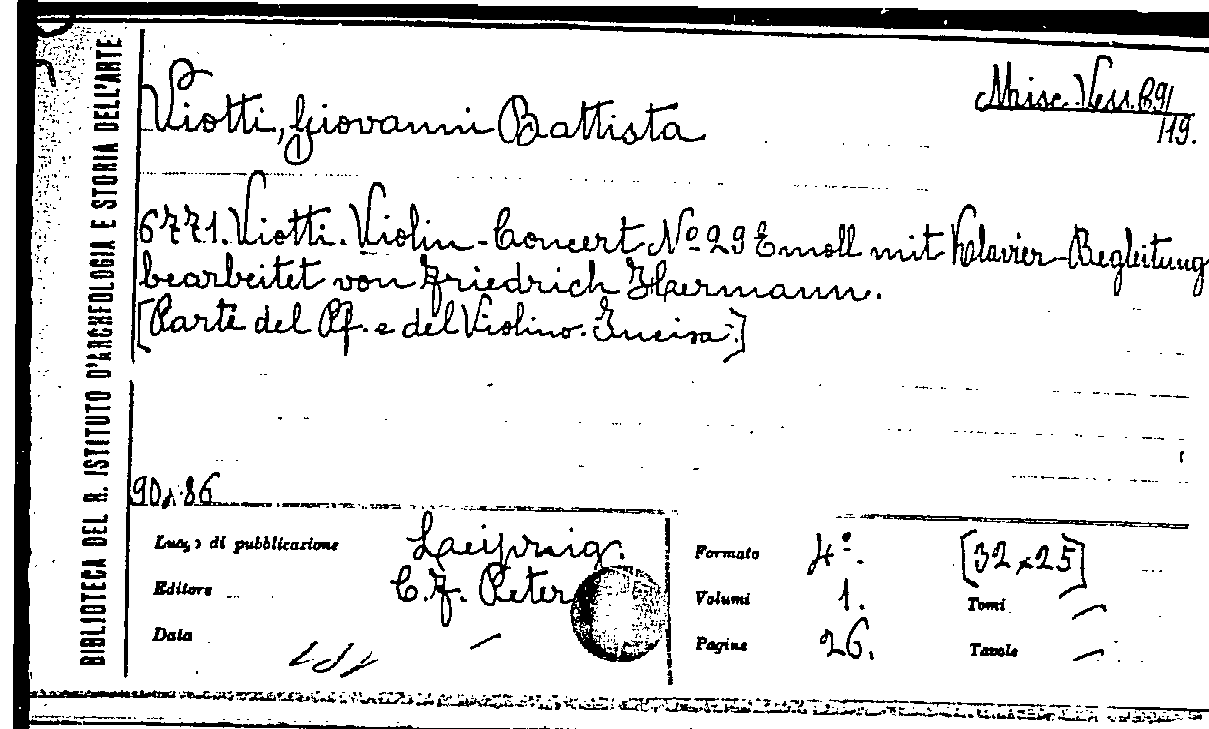 BIBLIOTECA DEL R. ISTITUTO D'ARCHEOLOGIA E STORIA DELL'ARTE
Viotti, Giovanni Battista
Misc. Vess. 691
119.
6771. Viotti. Violin-Concert Nº 29 Emoll mit Klavier-Begleitung
bearbeitet von Friedrich Hermann.
[Parte del Pf. e del Violino. Incisa.]
Luogo di pubblicazione Leipzig.
Editore C. F. Peters
Data —
Formato 4º. [32x25]
Volumi 1. Tomi —
Pagine 26. Tavole —